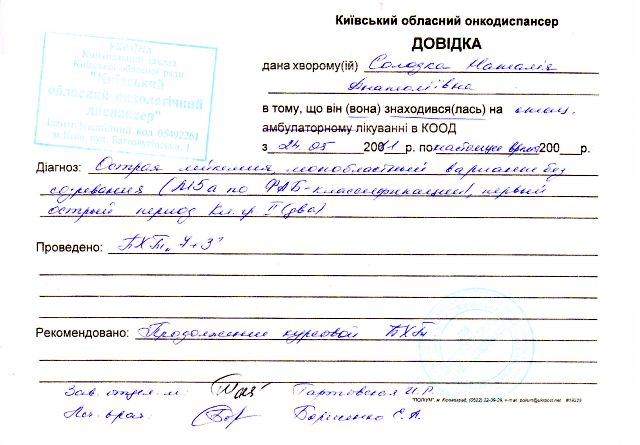 Київський обласний онкодиспансер
ДОВІДКА
УКРАЇНА
Комунальний заклад
Київської обласної ради
"Київський
обласний онкологічний
диспансер"
Ідентифікаційний код 05492261
м. Київ, вул. Багговутівська, 1
дана хворому(ій) Солодка Наталія
Анатоліївна
в тому, що він (вона) знаходився(лась) на стац.
амбулаторному лікуванні в КООД
з 24 05 200 11 р. по настоящее время 200 р.
Діагноз: Острая лейкемия, монобластный вариант без
созревания (М5а по ФАБ-классификации), первый
острый период Кл. гр. II (два)
Проведено: ПХТ "7+3"
Рекомендовано: Продолжение курсовой ПХТ
Зав. отдел-м: Тартовская И.Р.
"ПОЛІУМ", м. Кіровоград, (0522) 22-09-29,
Леч. врач: Борисенко Е. А.